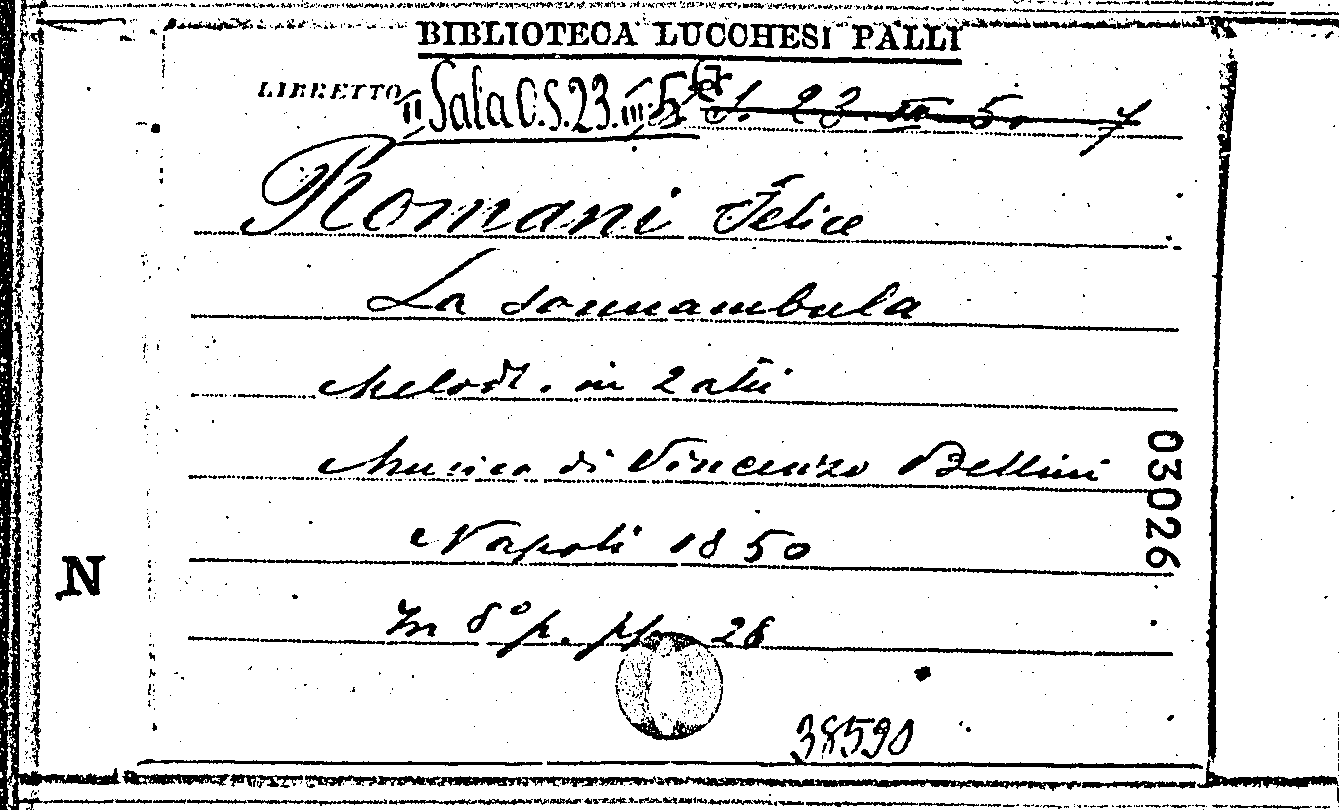 BIBLIOTECA LUCCHESI PALLI
LIBRETTO II Sala O.S.23.III.5 23 III 5. 7
Romani Felice
La sonnambula
Melodr. in 2 atti
Musica di Vincenzo Bellini
03026
Napoli 1850
N
In 8° p. pp. 26
38590